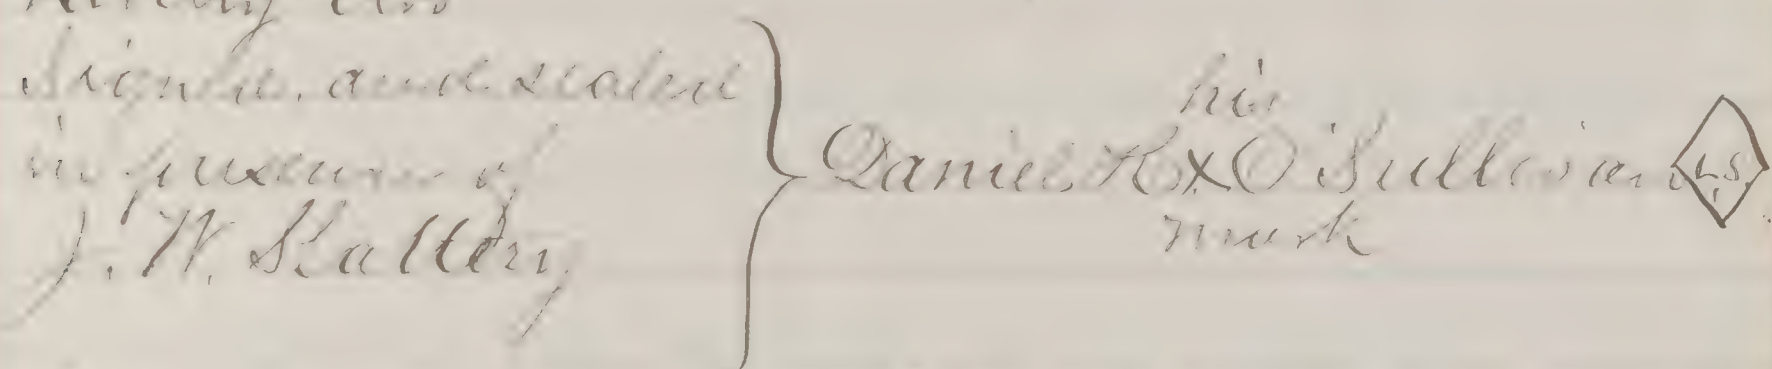 Signed and sealed
in presence of
J. W. Slattery
his
Daniel K X O'Sullivan L.S.
mark